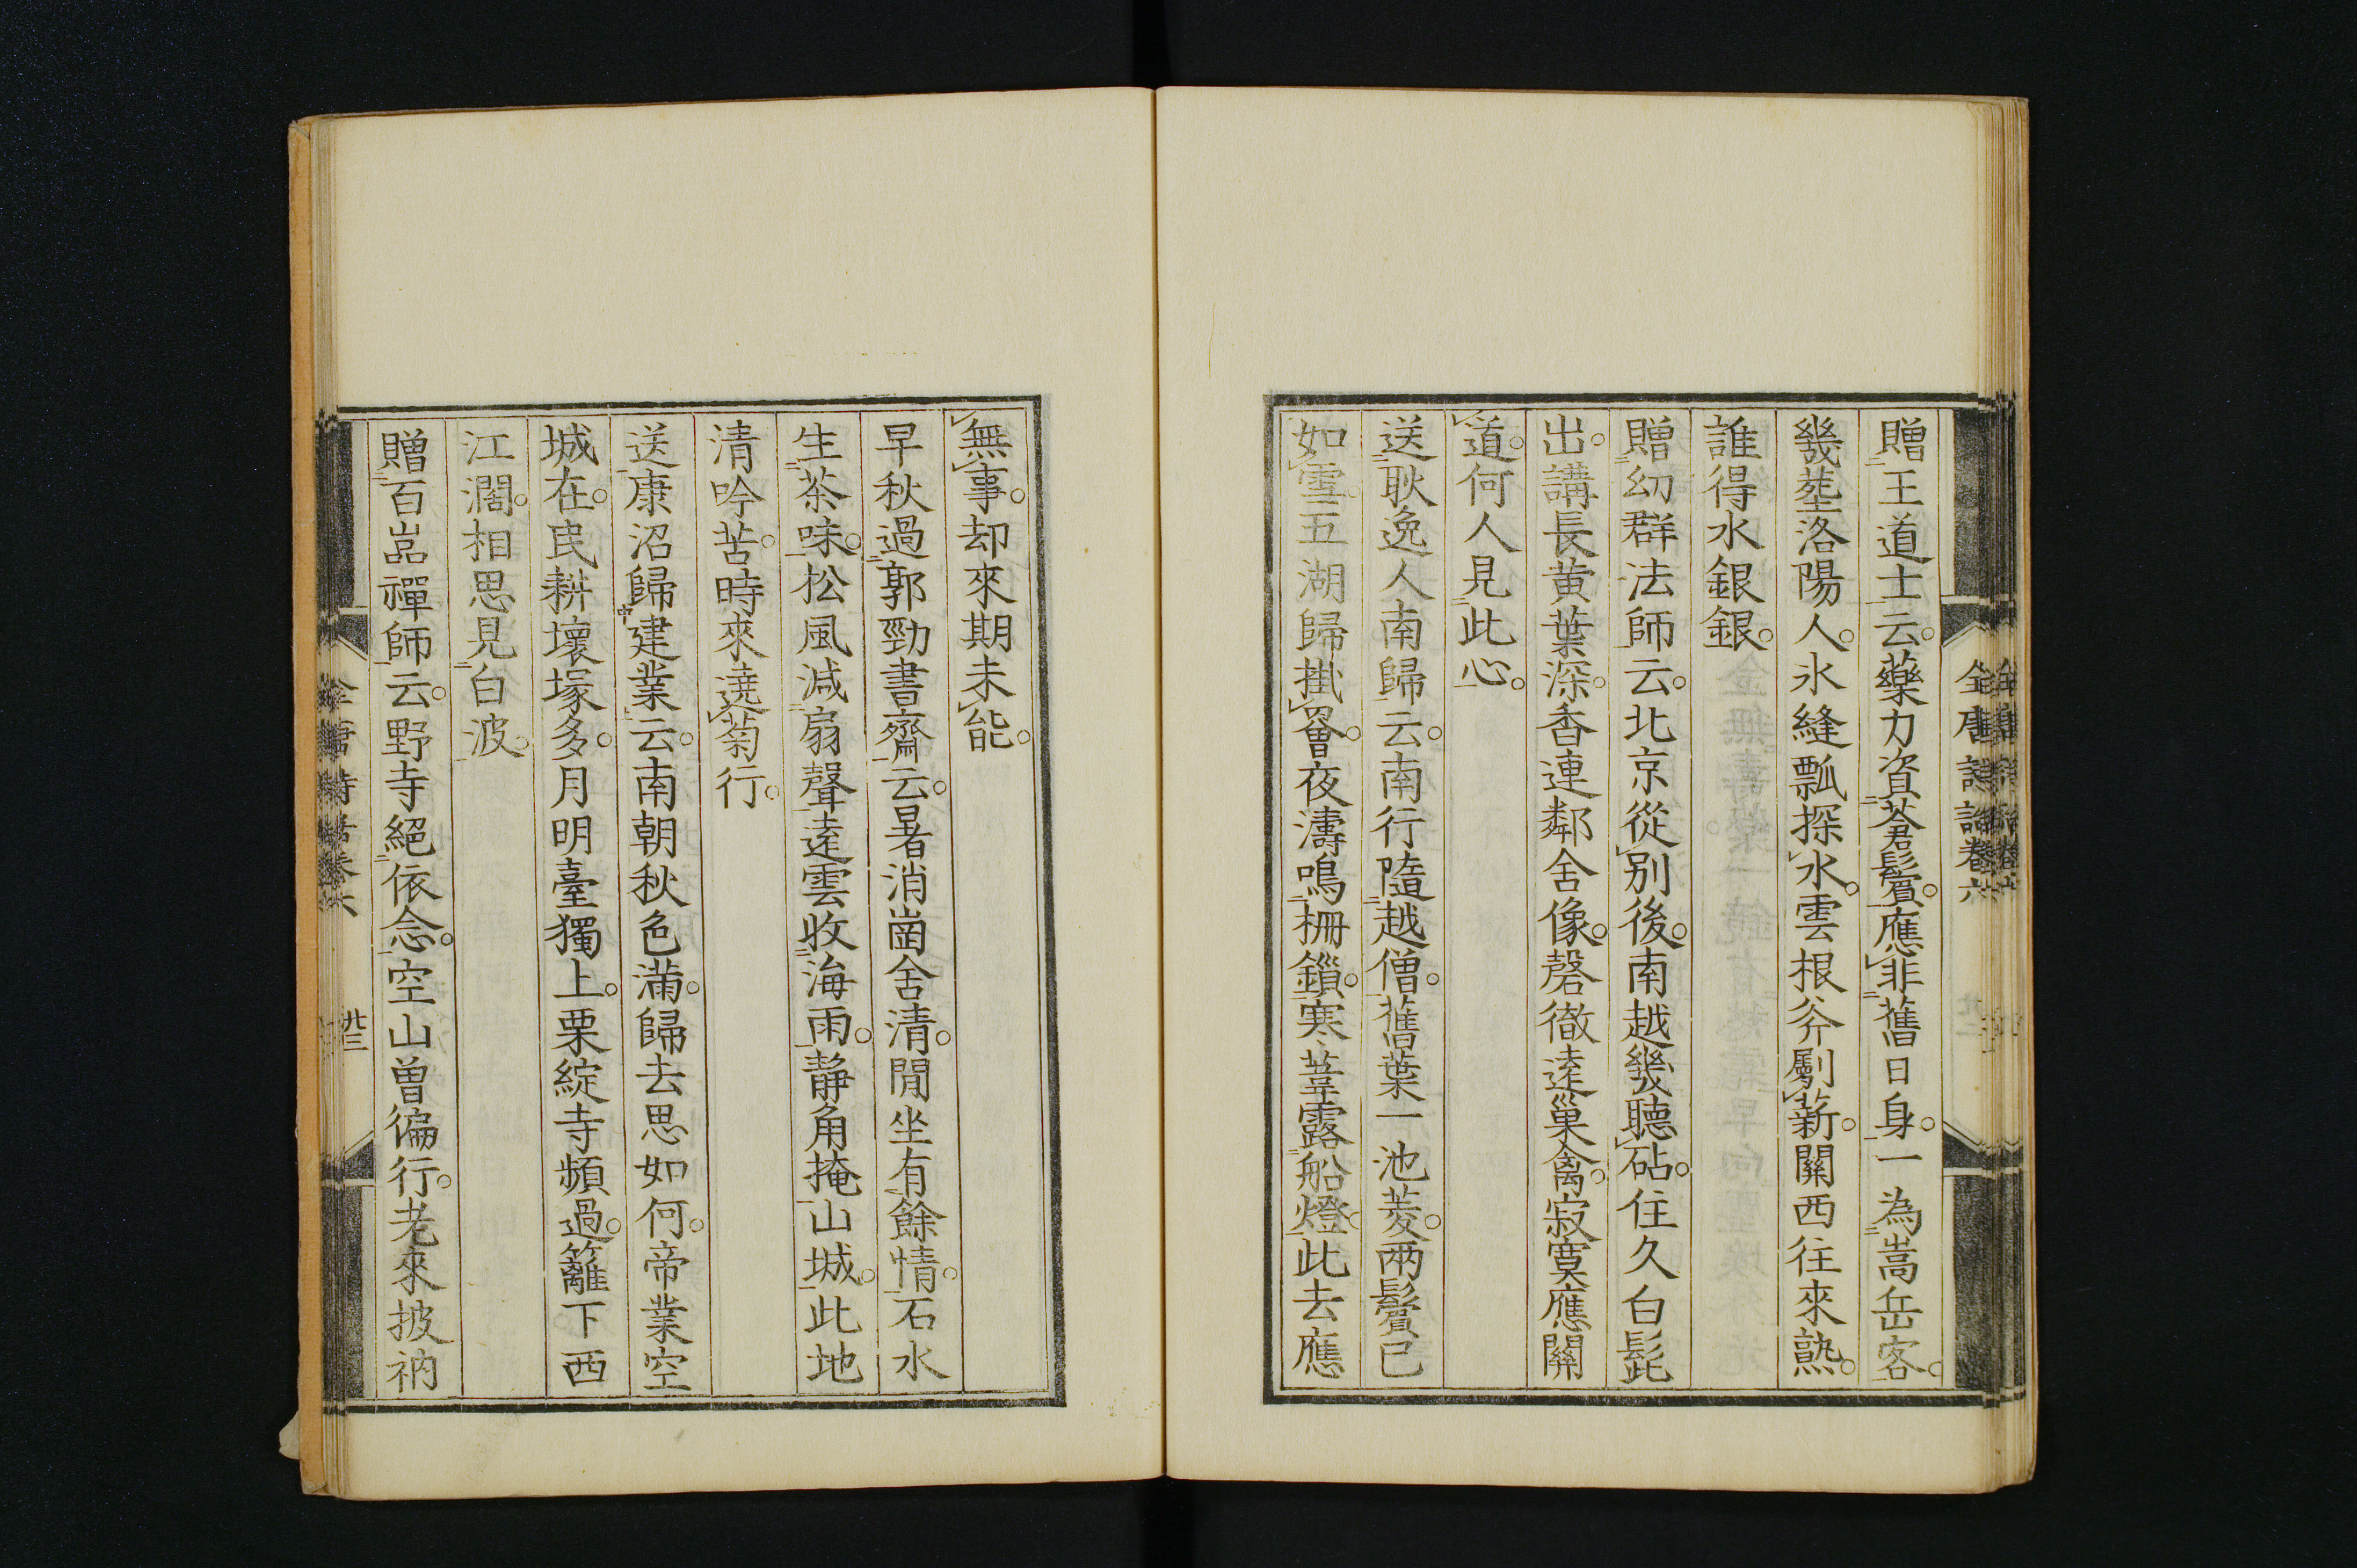 贈王道士云藥力資蒼鬢應非舊日身一為嵩岳客
幾塟洛陽人氷縫瓢探水雲根斧斸薪關西往來熟
誰得水銀銀
贈幻群法師云北京從別後南越幾聽砧住久白髭
出講長黄葉深香連鄰舍像磬徹遠巢禽寂寞應關
道何人見此心
送耿逸人南歸云南行隨越僧舊葉一池菱兩鬢已
如雪五湖歸掛罾夜濤鳴柵鎻寒葦露船燈此去應
全唐詩話卷六
無事却來期未能
早秋過郭勁書齋云暑消崗舍清閒坐有餘情石水
生茶味松風減扇聲遠雲收海雨靜角掩山城此地
清吟苦時來遶菊行
送康沼歸建業云南朝秋色滿歸去思如何帝業空
城在民耕壞塚多月明臺獨上栗綻寺頻過籬下西
江濶相思見白波
贈百嵓禪師云野寺絕依念空山曾徧行老來披衲
全唐詩話卷六 廿三